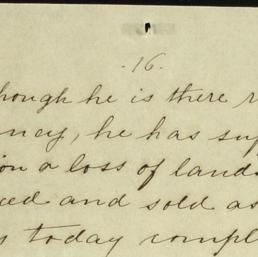 -16.
hough he is there
ney, he has su
on a loss of lands
ed and sold as
today compl